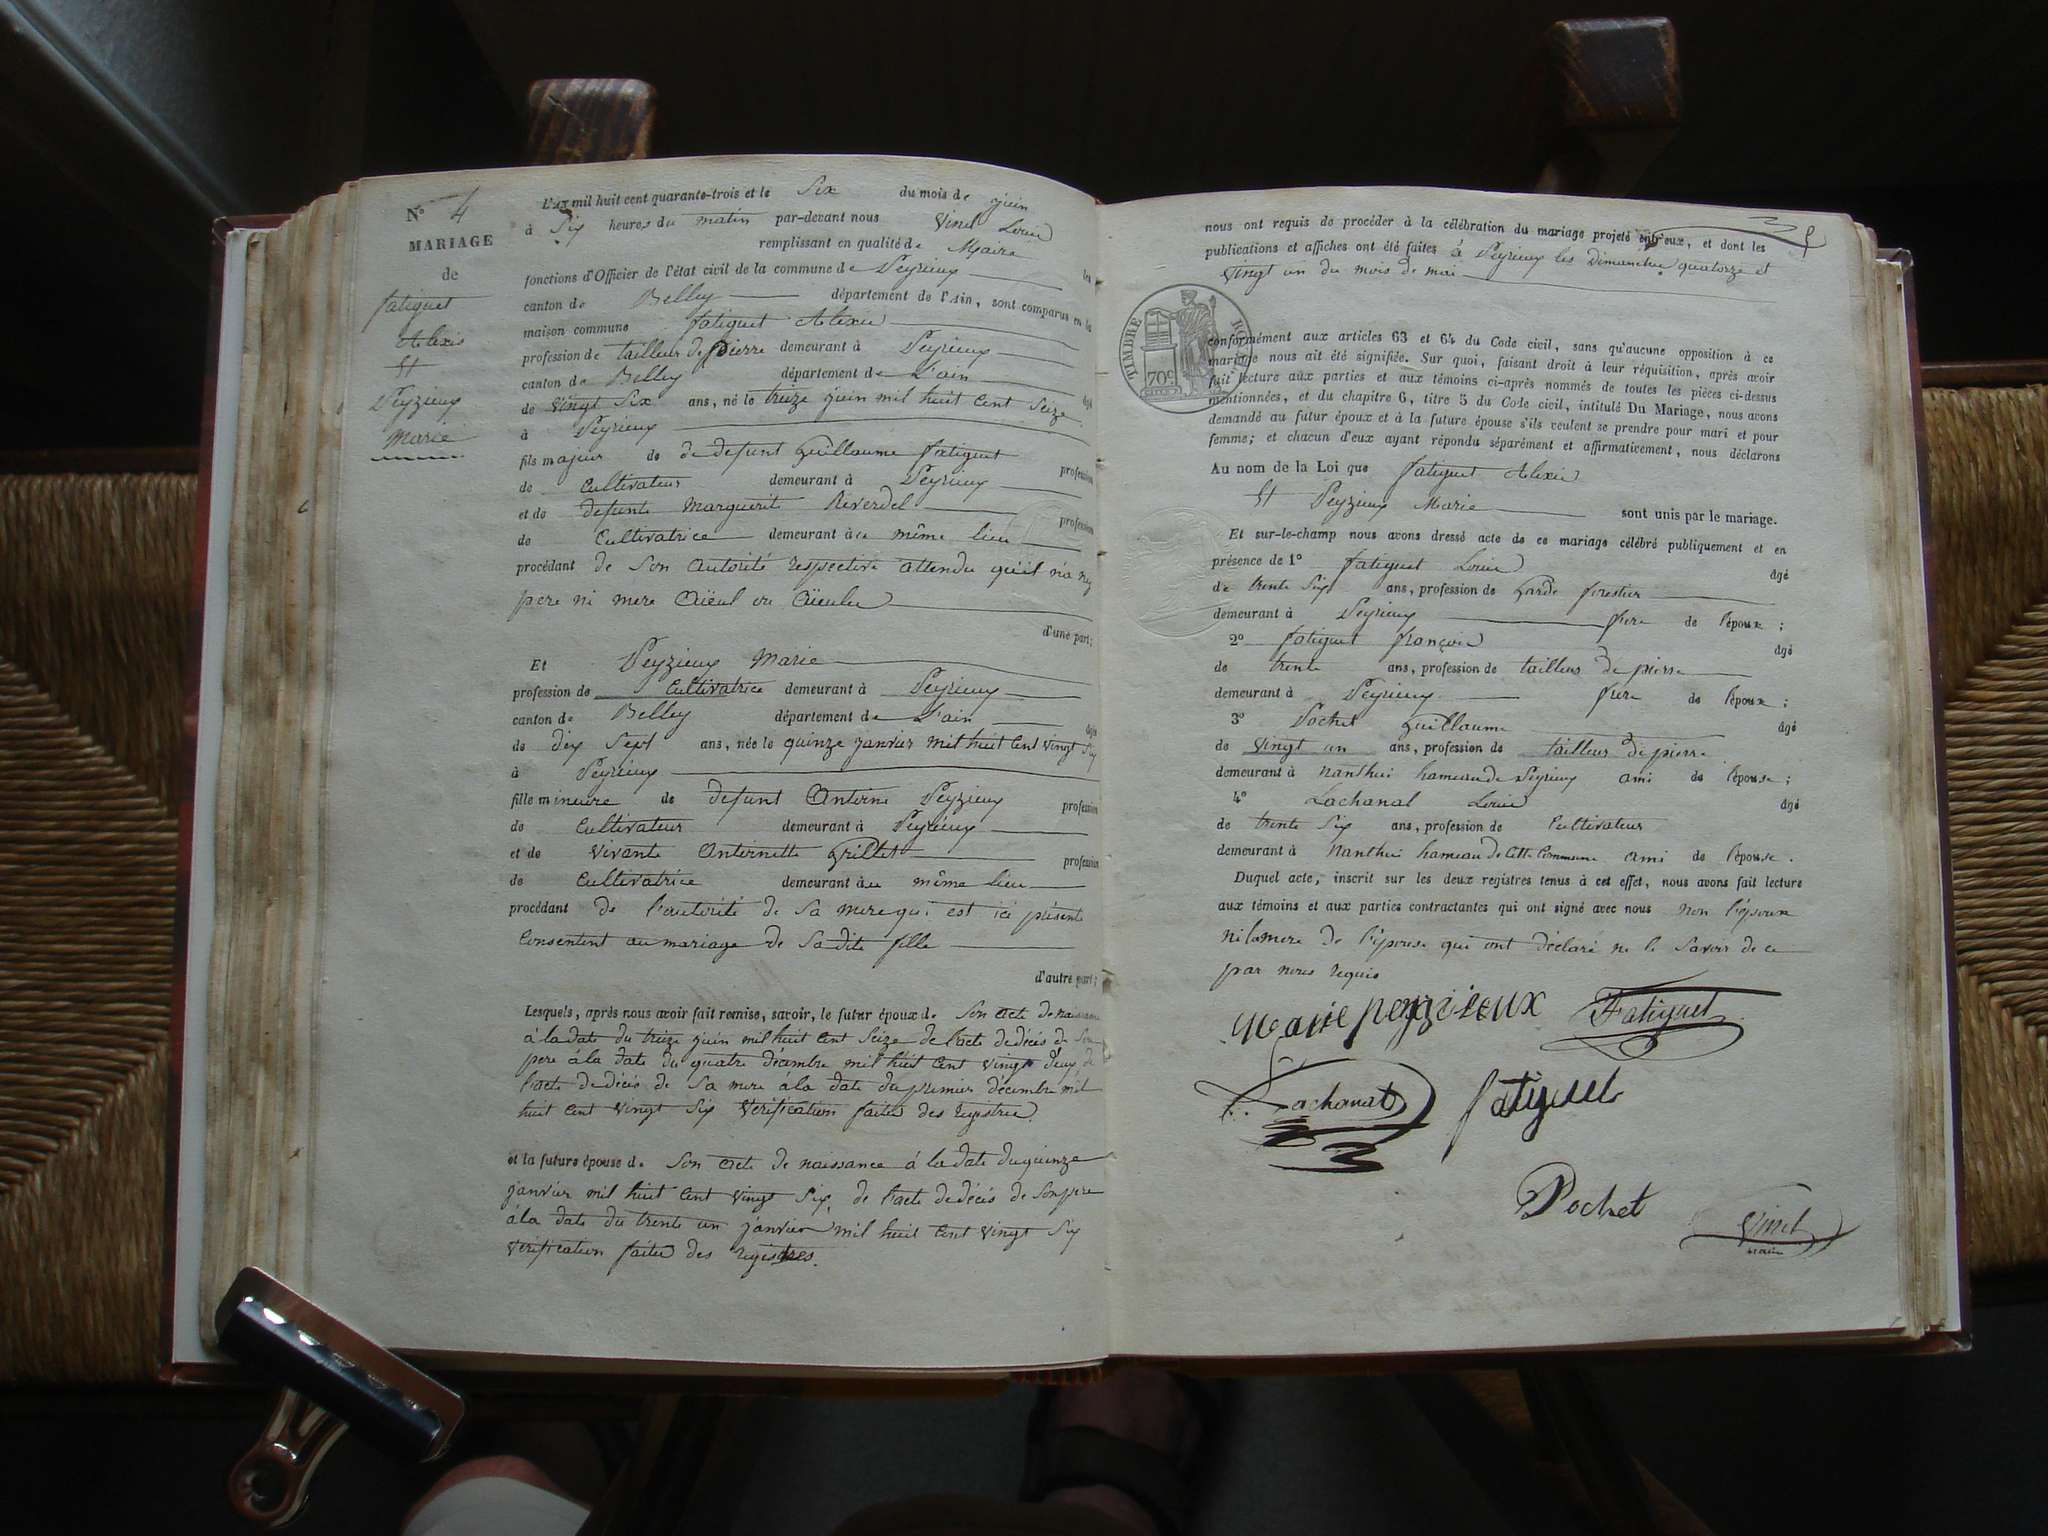 N° 4
MARIAGE
de
fatiguet
Alexis
Et
Peyzieux
Marie
L'an mil huit cent quarante-trois et le Six du mois de juin
à Six heures du matin par-devant nous Vinet Louis
remplissant en qualité de Maire les
fonctions d'Officier de l'état civil de la commune de Peyrieux
canton de Belley département de l'Ain, sont comparus en la
maison commune fatiguet Alexis
profession de tailleur de pierre demeurant à Peyrieux
canton de Belley département de L'ain âgé
de vingt Six ans, né le treize juin mil huit cent Seize
à Peyrieux
fils majeur de de defunt Guillaume fatiguet profession
de Cultivateur demeurant à Peyrieux
et de defunte Marguerite Reverdel profession
de Cultivatrice demeurant au même lieu
procédant de Son autorité respective attendu qu'il n'a ny
pere ni mere aïeul ou aïeule
d'une part;
Et Peyzieux Marie
profession de Cultivatrice demeurant à Peyrieux
canton de Belley département de L'ain âgée
de dix Sept ans, née le quinze janvier mil huit cent vingt Six
à Peyrieux
fille mineure de defunt Antoine Peyzieux profession
de Cultivateur demeurant à Peyrieux
et de vivante Antoinette Grillet profession
de Cultivatrice demeurant au même lieu
procédant de l'autorité de Sa mere qui est ici présente
Consentent au mariage de Sa dite fille
d'autre part;
Lesquels, après nous avoir fait remise, savoir, le futur époux de Son acte de naissance
à la date du treize juin mil huit cent Seize de l'acte de décès de Son
pere à la date du quatre décembre mil huit cent vingt deux de
l'acte de décès de Sa mere à la date du premier décembre mil
huit cent vingt Six vérification faite des registres.
et la future épouse de Son acte de naissance à la date du quinze
janvier mil huit cent vingt Six, de l'acte de décès de Son pere
à la date du trente un janvier mil huit cent vingt Six
vérification faite des registres.
nous ont requis de procéder à la célébration du mariage projeté entr'eux, et dont les
publications et affiches ont été faites à Peyrieux les Dimanches quatorze et
vingt un du mois de mai
TIMBRE RO
70c
conformément aux articles 63 et 64 du Code civil, sans qu'aucune opposition à ce
mariage nous ait été signifiée. Sur quoi, faisant droit à leur réquisition, après avoir
fait lecture aux parties et aux témoins ci-après nommés de toutes les pièces ci-dessus
mentionnées, et du chapitre 6, titre 5 du Code civil, intitulé Du Mariage, nous avons
demandé au futur époux et à la future épouse s'ils veulent se prendre pour mari et pour
femme; et chacun d'eux ayant répondu séparément et affirmativement, nous déclarons
Au nom de la Loi que fatiguet Alexis
Et Peyzieux Marie sont unis par le mariage.
Et sur-le-champ nous avons dressé acte de ce mariage célébré publiquement et en
présence de 1° fatiguet Louis âgé
de trente Six ans, profession de Garde forestier
demeurant à Peyrieux frere de l'époux;
2° fatiguet françois âgé
de trente ans, profession de tailleur de pierre
demeurant à Peyrieux frere de l'époux;
3° Pochet Guillaume âgé
de vingt un ans, profession de tailleur de pierre
demeurant à Nanthui hameau de Peyrieux ami de l'épouse;
4° Lachanal Louis âgé
de trente Six ans, profession de Cultivateur
demeurant à Nanthui hameau de Cette Commune ami de l'épouse.
Duquel acte, inscrit sur les deux registres tenus à cet effet, nous avons fait lecture
aux témoins et aux parties contractantes qui ont signé avec nous non l'époux
ni la mere de l'épouse qui ont déclaré ne le Savoir de ce
par nous requis
Marie peyzieux Fatiguet
Lachanal fatiguet
Pochet
Vinet
maire